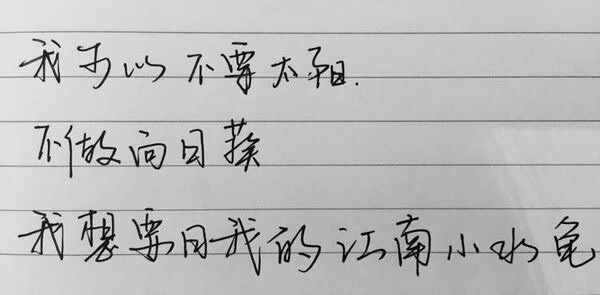 我可以不要太阳.
不做向日葵
我想要日我的江南小水龟